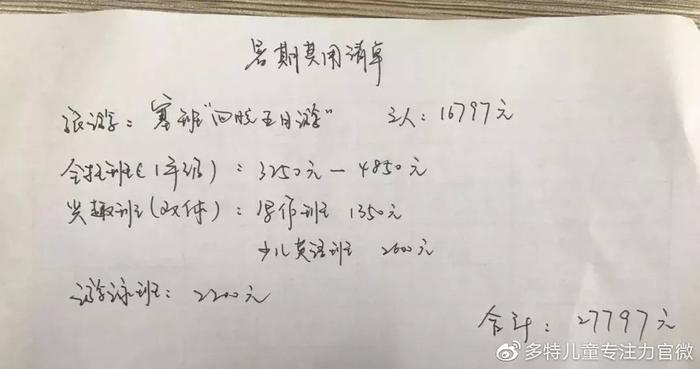 暑期费用清单
旅游：塞班“四晚五日游” 三人：16797元
全托班（1年级）：3250元—4850元
兴趣班（文体）：写作班 1350元
少儿英语班 2600元
游泳班：2200元
合计：27797元
多特儿童专注力官微